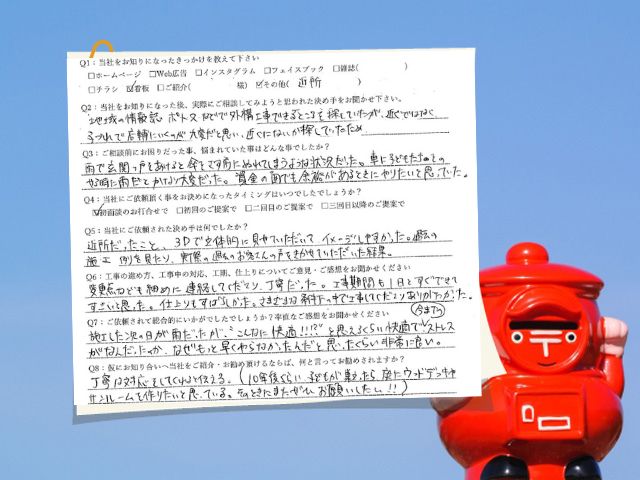 Q1：当社をお知りになったきっかけを教えて下さい
□ホームページ □Web広告 □インスタグラム □フェイスブック □雑誌( )
□チラシ ☑看板 □ご紹介( 様) ☑その他( 近所 )
Q2：当社をお知りになった後、実際にご相談してみようと思われた決め手をお聞かせ下さい。
地域の情報誌 ポトスなどで外構工事できるところを探していたが、近くではなく
子づれで店舗にいくのが大変だと思い、近くにないか探していたため
Q3：ご相談前にお困りだった事、悩まれていた事はどんな事でしたか？
雨で玄関の戸をあけると傘をさす前にぬれてしまうような状況だった。車に子どもたちのせ
る時に雨だとかなり大変だった。資金の面でも余裕があるときにやりたいと思っていた。
Q4：当社にご依頼頂く事をお決めになったタイミングはいつでしたでしょうか？
☑初面談のお打合せで □初回のご提案で □二回目のご提案で □三回目以降のご提案で
Q5：当社にご依頼された決め手は何でしたか？
近所だったこと、3Dで立体的に見せていただいてイメージしやすかった。過去の
施工例を見たり、実際の過去のお客さんの声をきかせていただいた結果。
Q6：工事の進め方、工事中の対応、工期、仕上りについてご意見・ご感想をお聞かせください
変更点なども細めに連絡してくださり、丁寧だった。工事期間も1日とすぐできて
すごいと思った。仕上りもすばらしかった。さまざまな条件の中で工事してくださりありがたかった。
Q7：ご依頼されて総合的にいかがでしたでしょうか？率直なご感想をお聞かせください
施工した次の日が雨だったが、"こんなに快適!!!?"と思えるくらい快適で、ストレス
がなんだったのか、なぜもっと早くやらなかったんだと思ったくらい非常に良い。
Q8：仮にお知り合いへ当社をご紹介・お勧め頂けるならば、何と言ってお勧めされますか？
丁寧な対応をしてくれると伝える。(10年後くらい、子どもが巣立ったら庭にウッドデッキや
サンルームを作りたいと思っている。そのときにまたぜひお願いしたい!!)